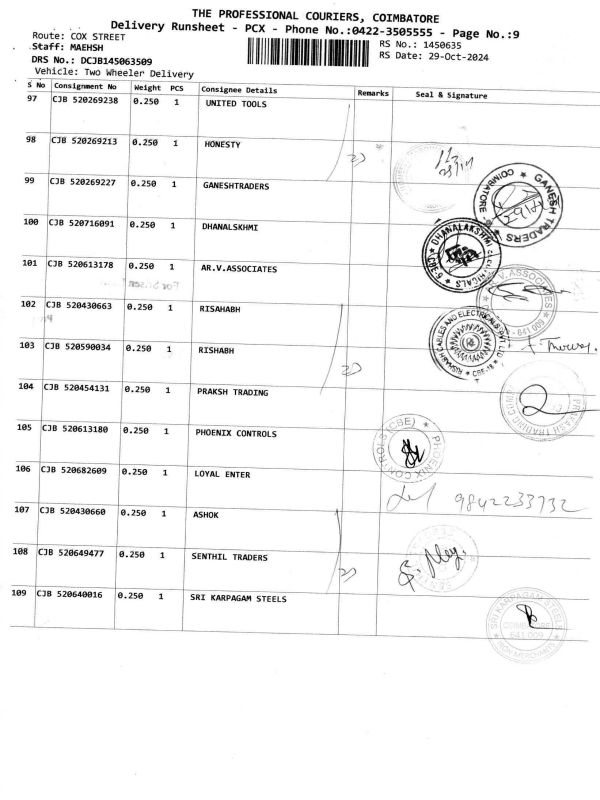 THE PROFESSIONAL COURIERS, COIMBATORE
Delivery Runsheet - PCX - Phone No.:0422-3505555 - Page No.:9
Route: COX STREET
RS No.: 1450635
Staff: MAEHSH
RS Date: 29-Oct-2024
DRS No.: DCJB145063509
Vehicle: Two Wheeler Delivery
S No Consignment No Weight PCS Consignee Details Remarks Seal & Signature
97 CJB 520269238 0.250 1 UNITED TOOLS
98 CJB 520269213 0.250 1 HONESTY
99 CJB 520269227 0.250 1 GANESHTRADERS
GANESH TRADERS ★ COIMBATORE ★
100 CJB 520716091 0.250 1 DHANALSKHMI
★ DHANALAKSHMI ★ CBE-6
101 CJB 520613178 0.250 1 AR.V.ASSOCIATES
V.ASSOCIATES ★ 641 009
102 CJB 520430663 0.250 1 RISAHABH
RISHABH CABLES AND ELECTRICALS PVT LTD ★ CBE-18 ★
103 CJB 520590034 0.250 1 RISHABH
104 CJB 520454131 0.250 1 PRAKSH TRADING
105 CJB 520613180 0.250 1 PHOENIX CONTROLS
PHOENIX CONTROLS (CBE) ★
106 CJB 520682609 0.250 1 LOYAL ENTER
9842233732
107 CJB 520430660 0.250 1 ASHOK
108 CJB 520649477 0.250 1 SENTHIL TRADERS
109 CJB 520640016 0.250 1 SRI KARPAGAM STEELS
SRI KARPAGAM STEELS
641 009